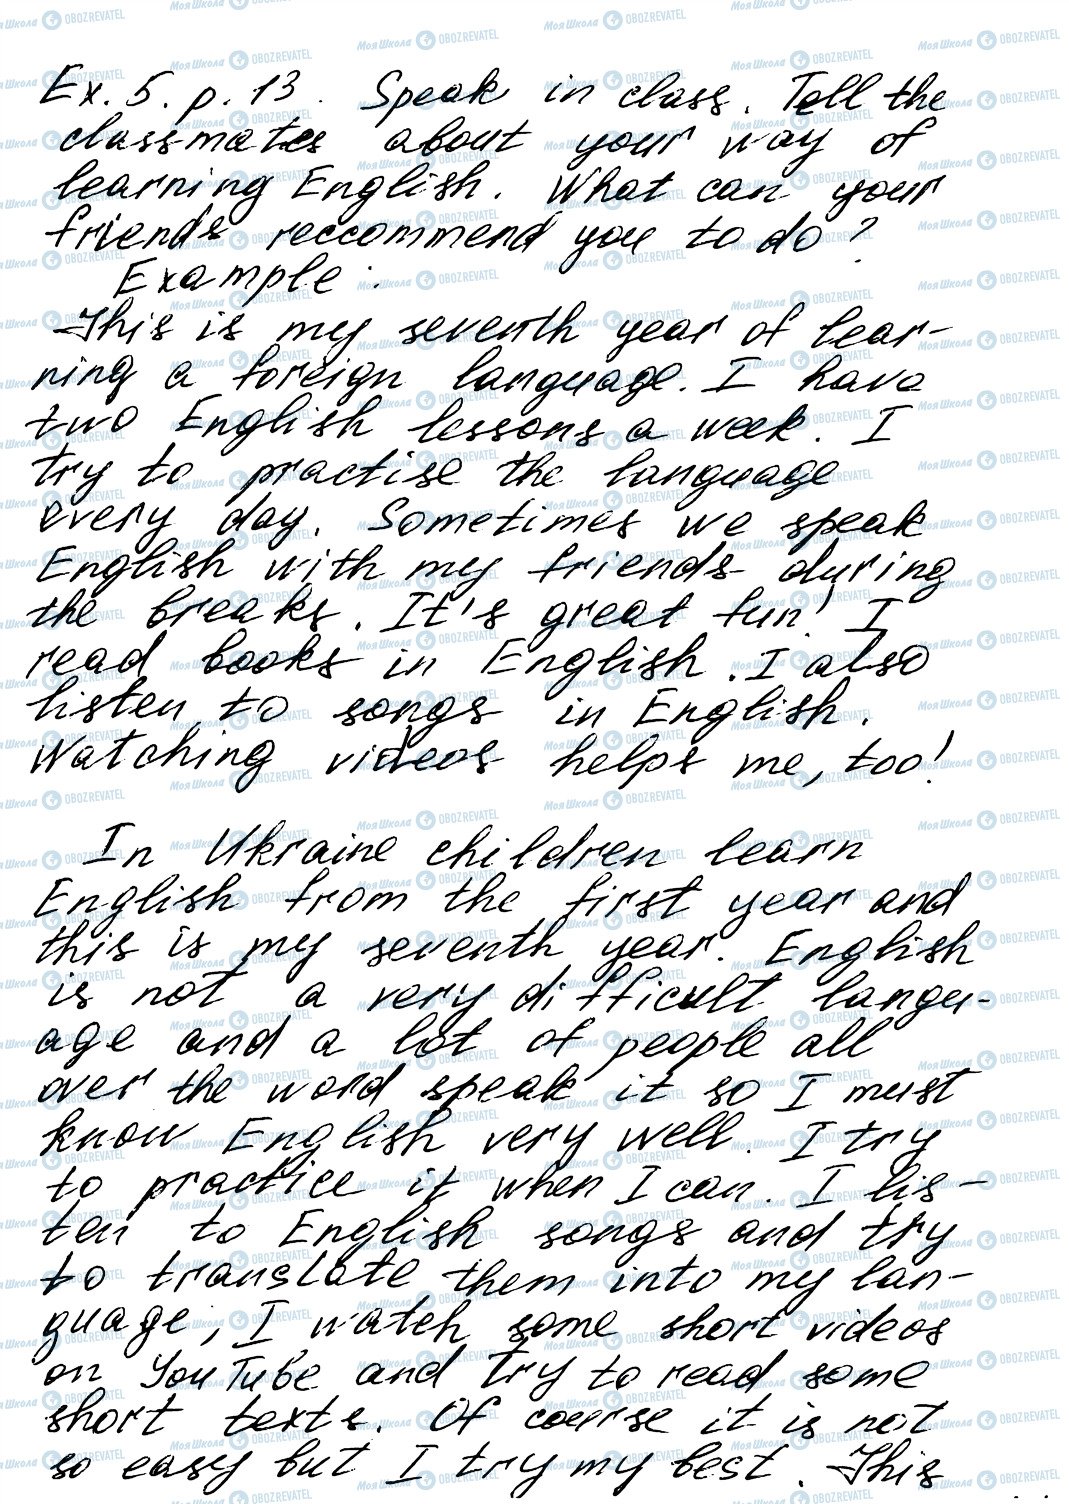 Ex. 5. p. 13. Speak in class. Tell the
classmates about your way of
learning English. What can your
friends reccommend you to do?
Example:
This is my seventh year of lear-
ning a foreign language. I have
two English lessons a week. I
try to practise the language
every day. Sometimes we speak
English with my friends during
the breaks. It's great fun! I
read books in English. I also
listen to songs in English.
Watching videos helps me, too!
In Ukraine children learn
English from the first year and
this is my seventh year. English
is not a very difficult langu-
age and a lot of people all
over the word speak it so I must
know English very well. I try
to practice it when I can. I lis-
ten to English songs and try
to translate them into my lan-
guage, I watch some short videos
on YouTube and try to read some
short texts. Of course it is not
so easy but I try my best. This